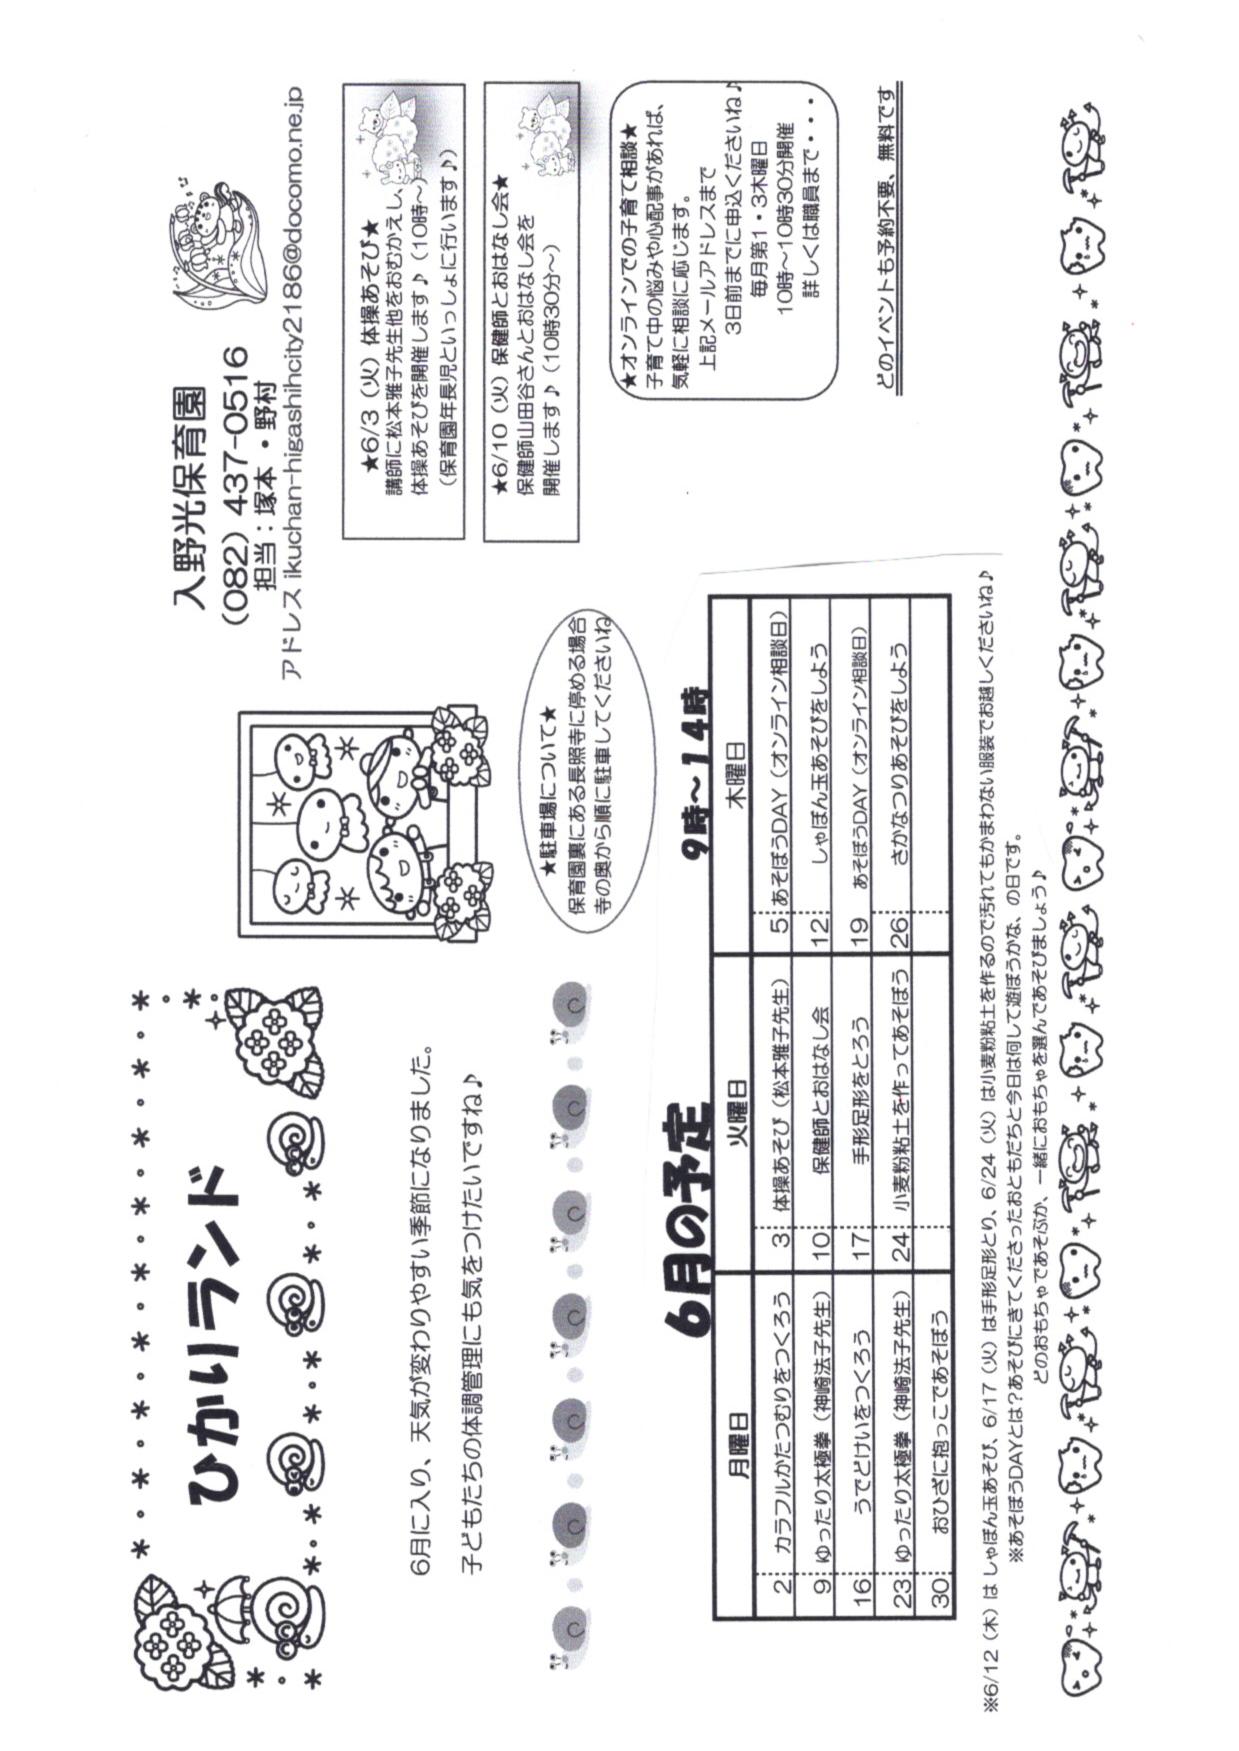 ひかりランド
入野光保育園
（082）437-0516
担当：塚本・野村
アドレス ikuchan-higashihcity2186@docomo.ne.jp
6月に入り、天気が変わりやすい季節になりました。
子どもたちの体調管理にも気をつけたいですね♪
★駐車場について★
保育園裏にある長照寺に停める場合
寺の奥から順に駐車してくださいね
★6/3（火）体操あそび★
講師に松本雅子先生他をおむかえし、
体操あそびを開催します♪（10時～）
（保育園年長児といっしょに行います♪）
★6/10（火）保健師とおはなし会★
保健師山田谷さんとおはなし会を
開催します♪（10時30分～）
★オンラインでの子育て相談★
子育て中の悩みや心配事があれば、
気軽に相談に応じます。
上記メールアドレスまで
3日前までに申込くださいね♪
毎月第1・3木曜日
10時～10時30分開催
詳しくは職員まで・・・
どのイベントも予約不要、無料です
6月の予定 9時～14時
月曜日 火曜日 木曜日
2 カラフルかたつむりをつくろう 3 体操あそび（松本雅子先生） 5 あそぼうDAY（オンライン相談日）
9 ゆったり太極拳（神崎法子先生） 10 保健師とおはなし会 12 しゃぼん玉あそびをしよう
16 うでどけいをつくろう 17 手形足形をとろう 19 あそぼうDAY（オンライン相談日）
23 ゆったり太極拳（神崎法子先生） 24 小麦粉粘土を作ってあそぼう 26 さかなつりあそびをしよう
30 おひざに抱っこであそぼう
※6/12（木）はしゃぼん玉あそび、6/17（火）は手形足形とり、6/24（火）は小麦粉粘土を作るので汚れてもかまわない服装でお越しくださいね♪
※あそぼうDAYとは？あそびにきてくださったおともだちと今日は何して遊ぼうかな、の日です。
どのおもちゃであそぶか、一緒におもちゃを選んであそびましょう♪